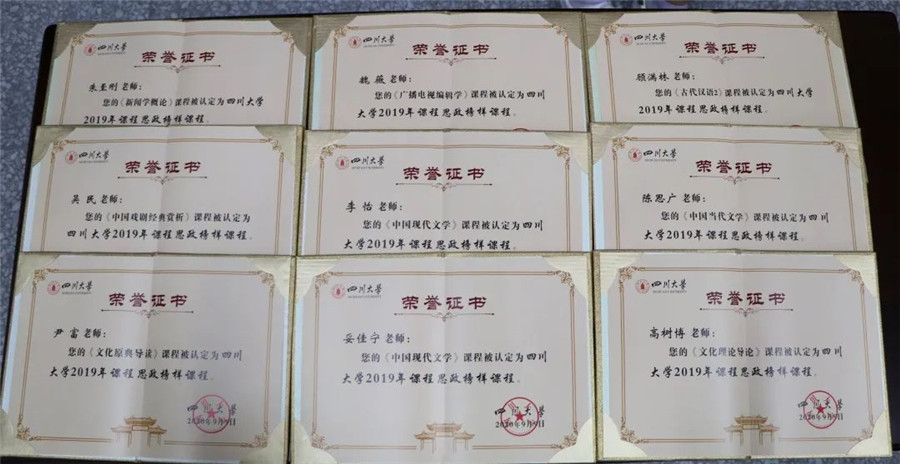 四川大学
荣誉证书
朱至刚 老师：
您的《新闻学概论》课程被认定为四川大学
2019年课程思政榜样课程。
四川大学
荣誉证书
魏 薇 老师：
您的《广播电视编辑学》课程被认定为四川
大学2019年课程思政榜样课程。
四川大学
荣誉证书
顾满林 老师：
您的《古代汉语2》课程被认定为四川大学
2019年课程思政榜样课程。
四川大学
荣誉证书
吴 民 老师：
您的《中国戏剧经典赏析》课程被认定为
四川大学2019年课程思政榜样课程。
四川大学
荣誉证书
李 怡 老师：
您的《中国现代文学》课程被认定为四川
大学2019年课程思政榜样课程。
四川大学
荣誉证书
陈思广 老师：
您的《中国当代文学》课程被认定为
四川大学2019年课程思政榜样课程。
四川大学
荣誉证书
尹 富 老师：
您的《文化原典导读》课程被认定为四川
大学2019年课程思政榜样课程。
四川大学
2020年9月9日
四川大学
荣誉证书
妥佳宁 老师：
您的《中国现代文学》课程被认定为四川
大学2019年课程思政榜样课程。
四川大学
2020年9月9日
四川大学
荣誉证书
高树博 老师：
您的《文化理论导论》课程被认定为四川
大学2019年课程思政榜样课程。
四川大学
2020年9月9日